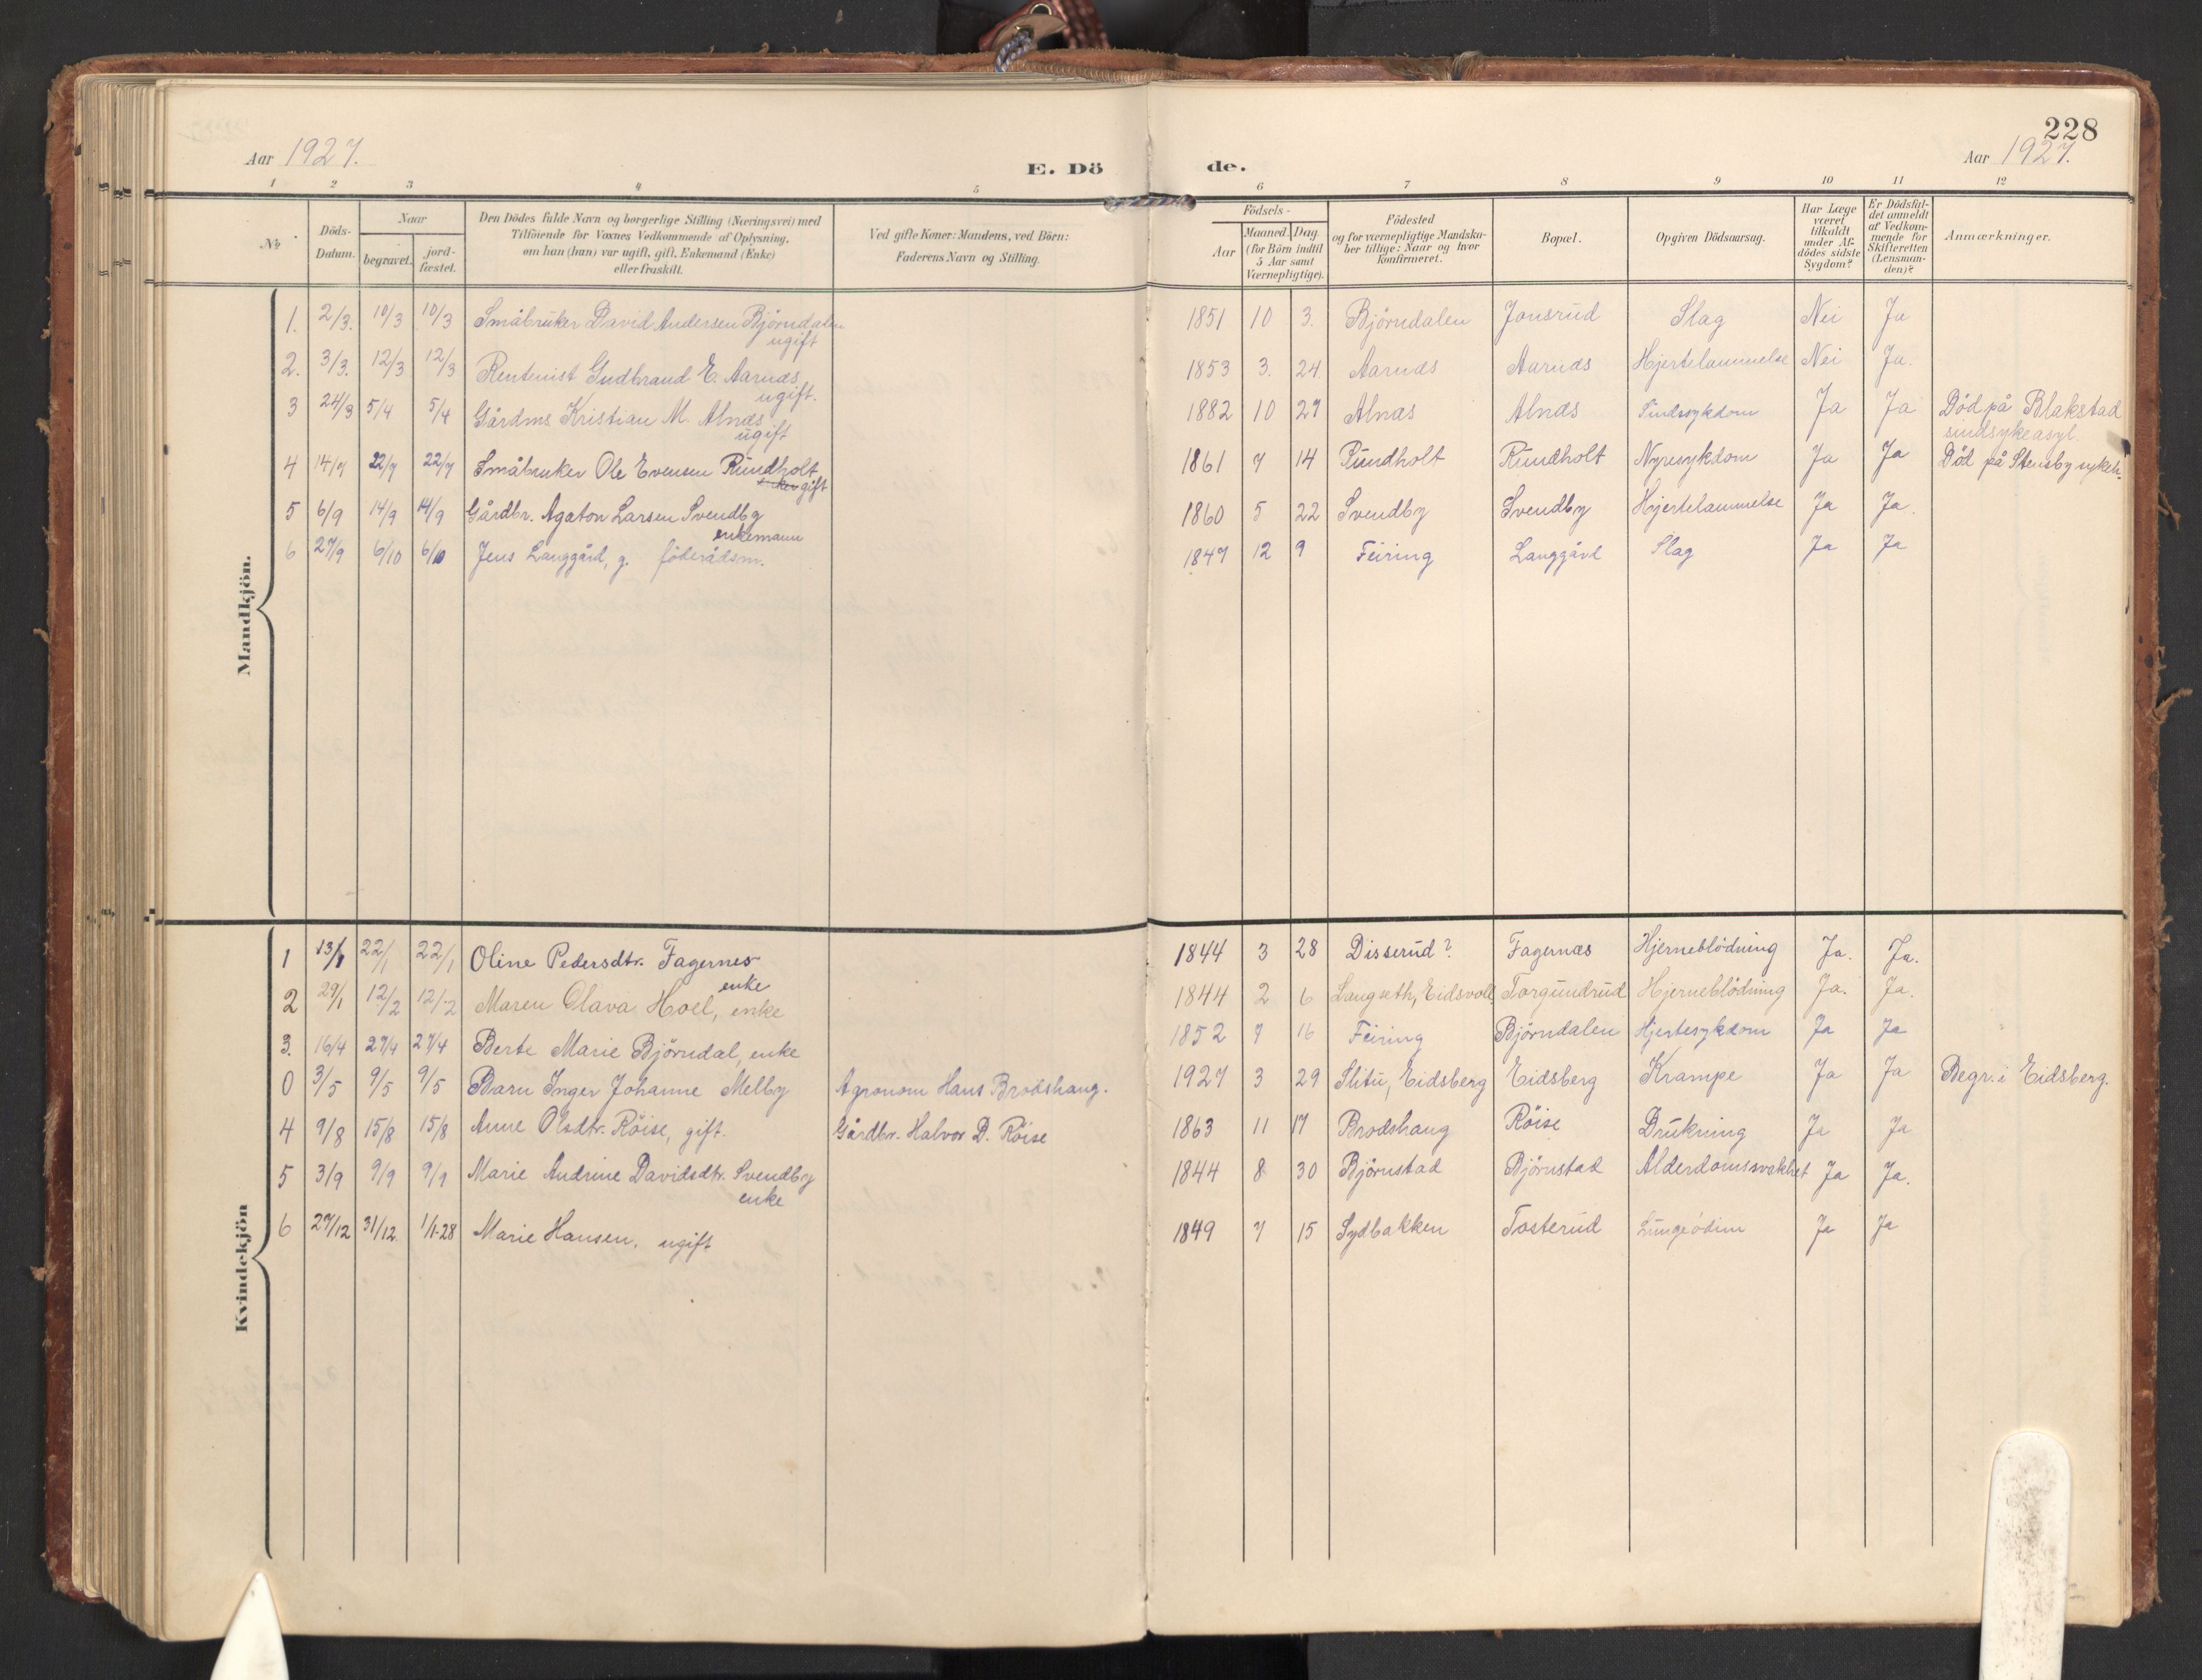 228
Aar 1927.
E. Dö
de.
Aar 1927.
1 2 3 4 5 6 7 8 9 10 11 12
No
Döds-Datum.
Naar
begravet.
jord-fæstet.
Den Dödes fulde Navn og borgerlige Stilling (Næringsvei) med
Tilföiende for Voxnes Vedkommende af Oplysning,
om han (hun) var ugift, gift, Enkemand (Enke)
eller fraskilt.
Ved gifte Koner: Mandens, ved Börn:
Faderens Navn og Stilling.
Födsels-
Aar
Maaned. Dag
(for Börn indtil
5 Aar samt
Værnepligtige).
Födested
og for værnepligtige Mandska-
ber tillige: Naar og hvor
konfirmeret.
Bopæl.
Opgiven Dödsaarsag.
Har Læge
været
tilkaldt
under Af-
dödes sidste
Sygdom?
Er Dödsfal-
det anmeldt
af Vedkom-
mende for
Skifteretten
(Lensman-
den)?
Anmærkninger.
Mandkjön.
1. 2/3. 10/3 10/3 Småbruker David Andersen Björndalen ugift 1851 10 3. Björndalen Jonsrud Slag Nei Ja
2. 3/3. 12/3 12/3 Rentenist Gudbrand E. Aarnæs ugift. 1853 3. 24 Aarnæs Aarnæs Hjertelammelse Nei Ja.
3 24/3 5/4 5/4 Gårdms Kristian M. Alnæs ugift 1882 10 27 Alnæs Alnæs Sindssykdom Ja Ja Död på Blakstad
sindsykeasyl.
4 14/7 22/7 22/7 Småbruker Ole Evensen Rundholt gift 1861 7 14 Rundholt Rundholt Nyresykdom Ja Ja Död på Stensby sykeh.
5 6/9 14/9 14/9 Gårdbr. Agaton Larsen Svendby enkemann 1860 5 22 Svendby Svendby Hjertelammelse Ja Ja.
6 27/9 6/10 6/10 Jens Langgård, g. föderådsm. 1847 12 9 Feiring Langgård Slag Ja Ja
Kvindekjön
1 13/1 22/1 22/1 Oline Pedersdtr. Fagernes enke 1844 3 28 Disserud? Fagernæs Hjerneblödning Ja. Ja.
2 29/1 12/2 12/2 Maren Olava Hoel, enke 1844 2 6 Langseth, Eidsvoll Torgundrud Hjerneblödning Ja. Ja.
3. 16/4 27/4 27/4 Berte Marie Björndal, enke 1852 7 16 Feiring Björndalen Hjertesykdom Ja Ja
0 3/5 9/5 9/5 Barn Inger Johanne Melby Agronom Hans Brodshaug. 1927 3 29 Slitu, Eidsberg Eidsberg Krampe Ja Ja Begr. i Eidsberg.
4 9/8 15/8 15/8 Anne Olsdtr. Röise, gift. Gårdbr. Halvor D. Röise 1863 11 17 Brodshaug Röise Drukning Ja Ja
5 3/9 9/9 9/9 Marie Andrine Davidsdtr. Svendby enke 1844 8 30 Björnstad Björnstad Alderdomssvakhet Ja Ja.
6 27/12 31/12 1/1-28 Marie Hansen, ugift 1849 7 15 Sydbakken Tosterud Lungeödem Ja Ja